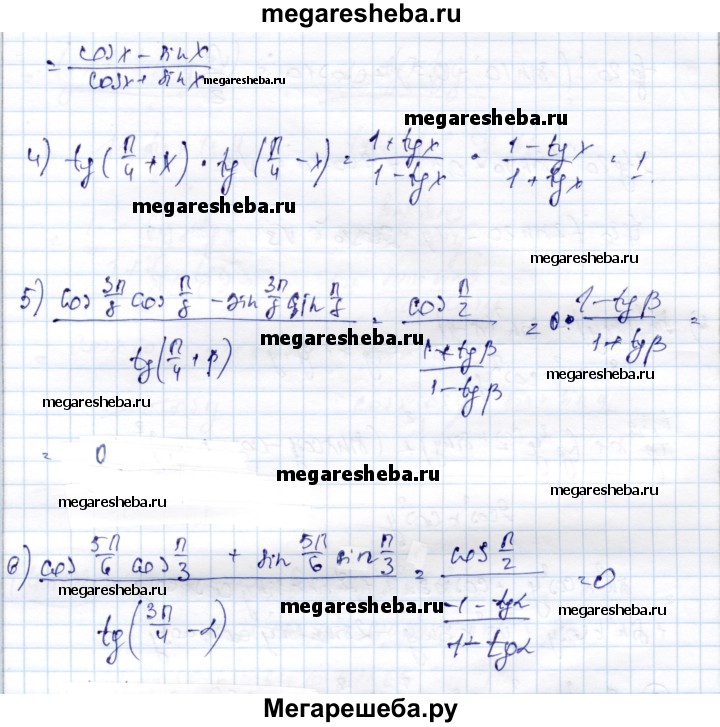 megaresheba.ru
= (cosx − sinx)/(cosx + sinx) megaresheba.ru
megaresheba.ru
4) tg(π/4 + x) · tg(π/4 − x) = (1 + tgx)/(1 − tgx) · (1 − tgx)/(1 + tgx) = 1.
megaresheba.ru
megaresheba.ru
5) (cos 3π/8 cos π/8 − sin 3π/8 sin π/8)/(tg(π/4 + β)) = (cos π/2)/((1 + tgβ)/(1 − tgβ)) = 0 · (1 − tgβ)/(1 + tgβ) =
megaresheba.ru
megaresheba.ru
megaresheba.ru
= 0
megaresheba.ru
megaresheba.ru
megaresheba.ru
6) (cos 5π/6 cos π/3 + sin 5π/6 sin π/3)/(tg(3π/4 − α)) = (cos π/2)/((−1 − tgα)/(1 − tgα)) = 0
megaresheba.ru
megaresheba.ru
megaresheba.ru
Мегарешеба.ру